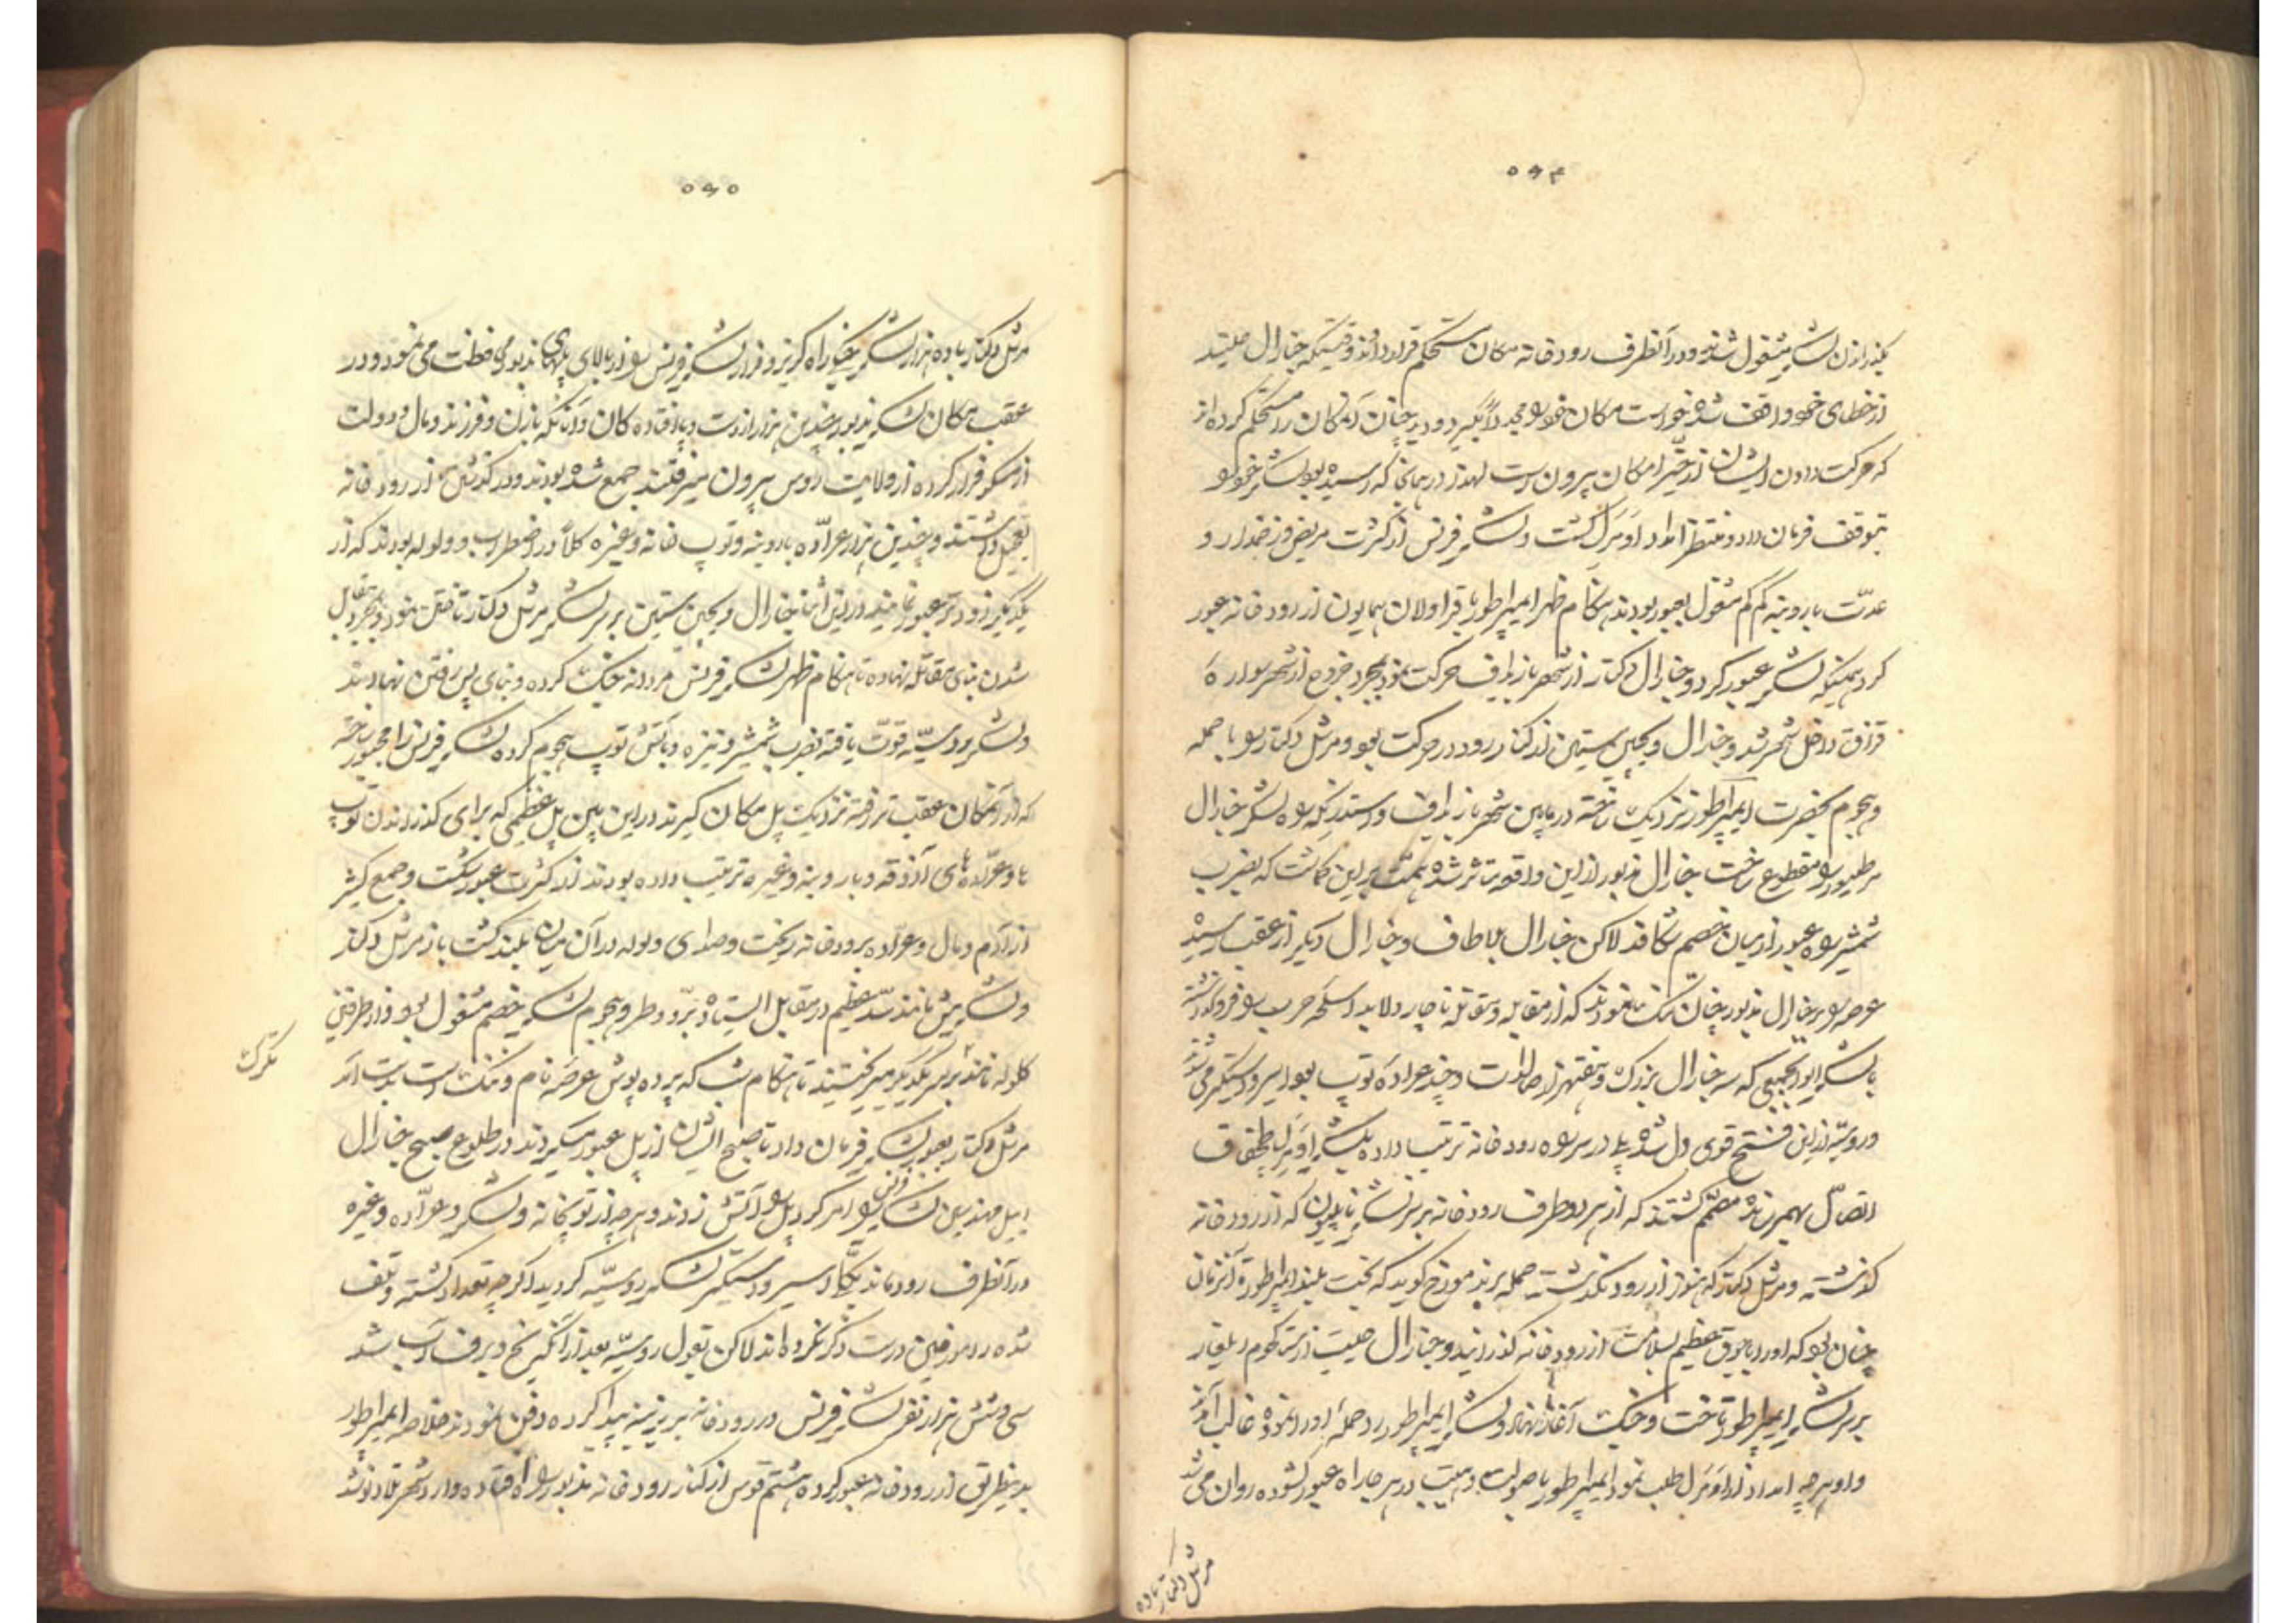 ۵۶۴
بگذرانزن لشکر مشغول شدند و در آنطرف رودخانه مکان مستحکم قرار دادند وقتیکه جنارال
از خطای خود واقف شده خواست مکان خود را مجدداً بگیرد و دید چنان آنمکان را مستحکم کرده‌اند
که حرکت دادن ایشان از حیّز امکان بیرون است لهذا در همانجا که رسیده بود لشکر خود را
بتوقف فرمان داد و منتظر امداد گشت و لشکر فرنس از کثرت مریض و زخمدار و
عدّت باروبنه کم کم مشغول بعبور بودند هنگام ظهر ایمپراطور با قراولان همایون از رودخانه عبور
کرد همینکه لشکر عبور کرد و جنارال دکتار از شهر باریزاف حرکت نمود بمجرد خروج از شهر سواره
قزاق داخل شهر شد و جنارال ویجین ستین از کنار رود در حرکت بود و مرشل دکتار را با حمله
و هجوم بحضرت ایمپراطور نزدیک ساخته در مابین شهر باریزاف و استدنیکه راه لشکر جنارال
را منقطع ساخت جنارال مذبور از این واقعه متأثر شده همّت بر این گماشت که بضرب
شمشیر راه عبور از میان خصم شکافد لاکن جنارال پلاطاف و جنارال دیگر از عقب رسیده
عرصه را بر جنارال مذبور چنان تنگ نمودند که از مقابله و مقاتله ناچار و لابد اسلحه حرب را فرو گذاشته
با لشکر ابوابجمعی که سه جنارال بزرگ و هفتهزار صالدات و چند عراده توپ بود اسیر و دستگیر می‌شدند
و روسیّه از این فتح قوی دل شده پلی در سر راه رودخانه ترتیب داده بلشکر
اتصال بهمرسانده مصمّم گشتند که از هر دو طرف رودخانه بر سر لشکر ناپلیون که از رودخانه
گذشته و مرشل دکتار که هنوز از رود نگذشته حمله برند مورخ گوید که بخت بلند ایمپراطور در آنزمان
چنان بود که او را با جوق عظیم بسلامت از رودخانه گذرانید و جنارال
بر سر لشکر ایمپراطور تاخت و جنگ آغاز نهاد و لشکر ایمپراطور رد حملۀ او را نموده غالب آمدند
و او هر چه امداد از طلب نمود ایمپراطور با صولت و هیبت در هر جا راه عبور گشوده روان می‌شد
مرشل دکتار با ده
۵۶۵
مرشل دکتار با ده هزار لشکر راه گریز و فرار لشکر فرنس را از بالای پلهای مذبور محافظت می‌نمود و در
عقب مکان لشکر مذبور چندین هزار از دست و پا افتاده‌کان و آنانکه با زن و فرزند و مال و دولت
از مسکو فرار کرده از ولایت روس بیرون میرفتند جمع شده بودند و در گذشتن از رودخانه
تعجیل داشتند و چندین هزار عرّاده باروبنه و توپ خانه و غیره کلاً در اضطراب و ولوله بودند که از
یکدیگر زودتر عبور نمایند در این اثنا جنارال ویجین ستین بر سر لشکر مرشل دکتار تاختن نمود و بمجرد مقابل
شدن بنای مقاتله نهاده تا هنگام ظهر لشکر فرنس مردانه جنگ کرده و بنای پس رفتن نهادند
و لشکر روسیّه قوّت یافته بضرب شمشیر و نیزه و بآتش توپ هجوم کرده لشکر فرنس را مجبور ساخته
که از آنمکان عقب تر رفته نزدیک پل مکان گیرند در این بین پل عظیمی که برای گذراندن توپ
ها و عرّاده‌های آذوقه و باروبنه و غیره ترتیب داده بودند از کثرت عبور شکست و جمع کثیر
از آدم و مال و عرّاده برودخانه ریخت و صدای ولوله در آن میان بلند گشت باز مرشل دکتار
و لشکریش مانند سدّ عظیم در مقابل ایستاده برد و طرد هجوم لشکر خصم مشغول بود و از طرفین
گلوله مانند تگرگ بر یکدیگر میریختند تا هنگام شب که پرده پوش عرصۀ نام و ننگ است بدست آمد
تگرگ
مرشل دکتار بعبور لشکر فرمان داد تا صبح ایشان از پل عبور میکردند در طلوع صبح جنارال
ابیل مهندسین لشکر فرنس را امر کرد پل را آتش زدند و هر چه از توپخانه و لشکر و عرّاده و غیره
در آنطرف رود ماند یکّجا اسیر و دستگیر لشکر روسیّه گردید اگر چه تعداد کشته و تلف
شده را مورخین درست ذکر نکرده‌اند لاکن بقول روسیّه بعد از آنکه یخ و برف آب شد
سی و شش هزار نفر لشکر فرنس در رودخانه بریزینه پیدا کرده دفن نمودند خلاصه ایمپراطور
بدینطریق از رودخانه عبور کرده هشتم قوس از کنار رودخانه مذبور براه افتاده وارد شهر